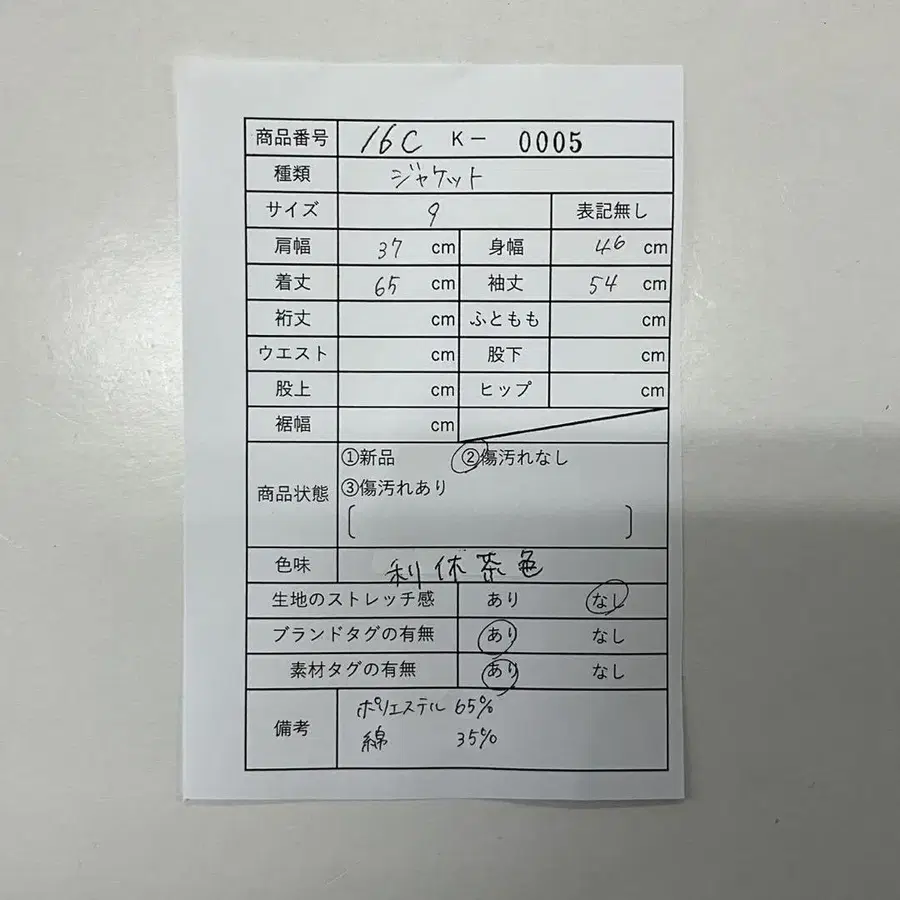 商品番号 16C K− 0005
種類 ジャケット
サイズ 9 表記無し
肩幅 37 cm 身幅 46 cm
着丈 65 cm 袖丈 54 cm
裄丈 cm ふともも cm
ウエスト cm 股下 cm
股上 cm ヒップ cm
裾幅 cm
商品状態 ①新品 ②傷汚れなし
③傷汚れあり
[ ]
色味 利休茶色
生地のストレッチ感 あり なし
ブランドタグの有無 あり なし
素材タグの有無 あり なし
備考 ポリエステル 65%
綿 35%